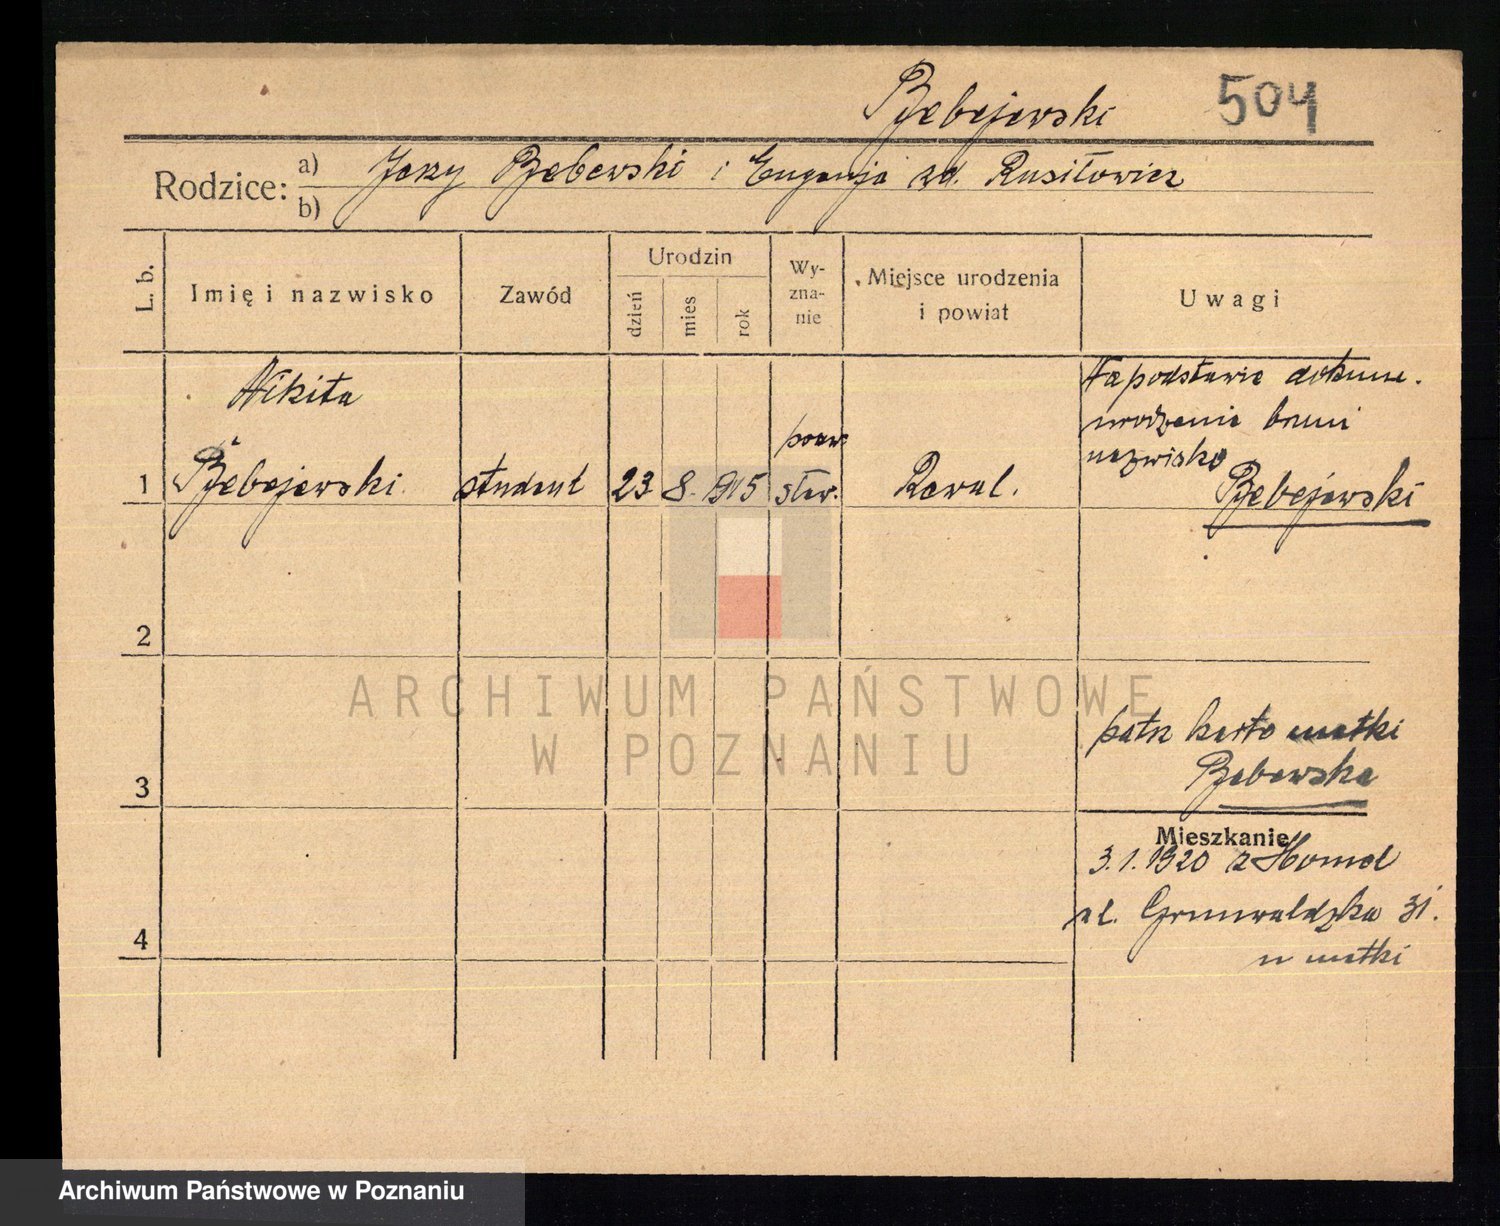 Rzebejewski 504
Rodzice: a) Jerzy Rzebewski i Eugenja zd. Rusiłowicz
b)
L. b.
Imię i nazwisko
Zawód
Urodzin
dzień
mies
rok
Wy-
zna-
nie
Miejsce urodzenia
i powiat
Uwagi
Nikita
1 Rzebejewski student 23 8. 1915
praw
sław.
Rewal.
Na podstawie dokum.
urodzenia brmi
nazwisko
Rzebejewski
2
3
patrz karto matki
Rzebewska
Mieszkanie
3.1.1920 z Homel
ul. Grunwaldzka 31.
u matki
4
ARCHIWUM PAŃSTWOWE
W POZNANIU
Archiwum Państwowe w Poznaniu